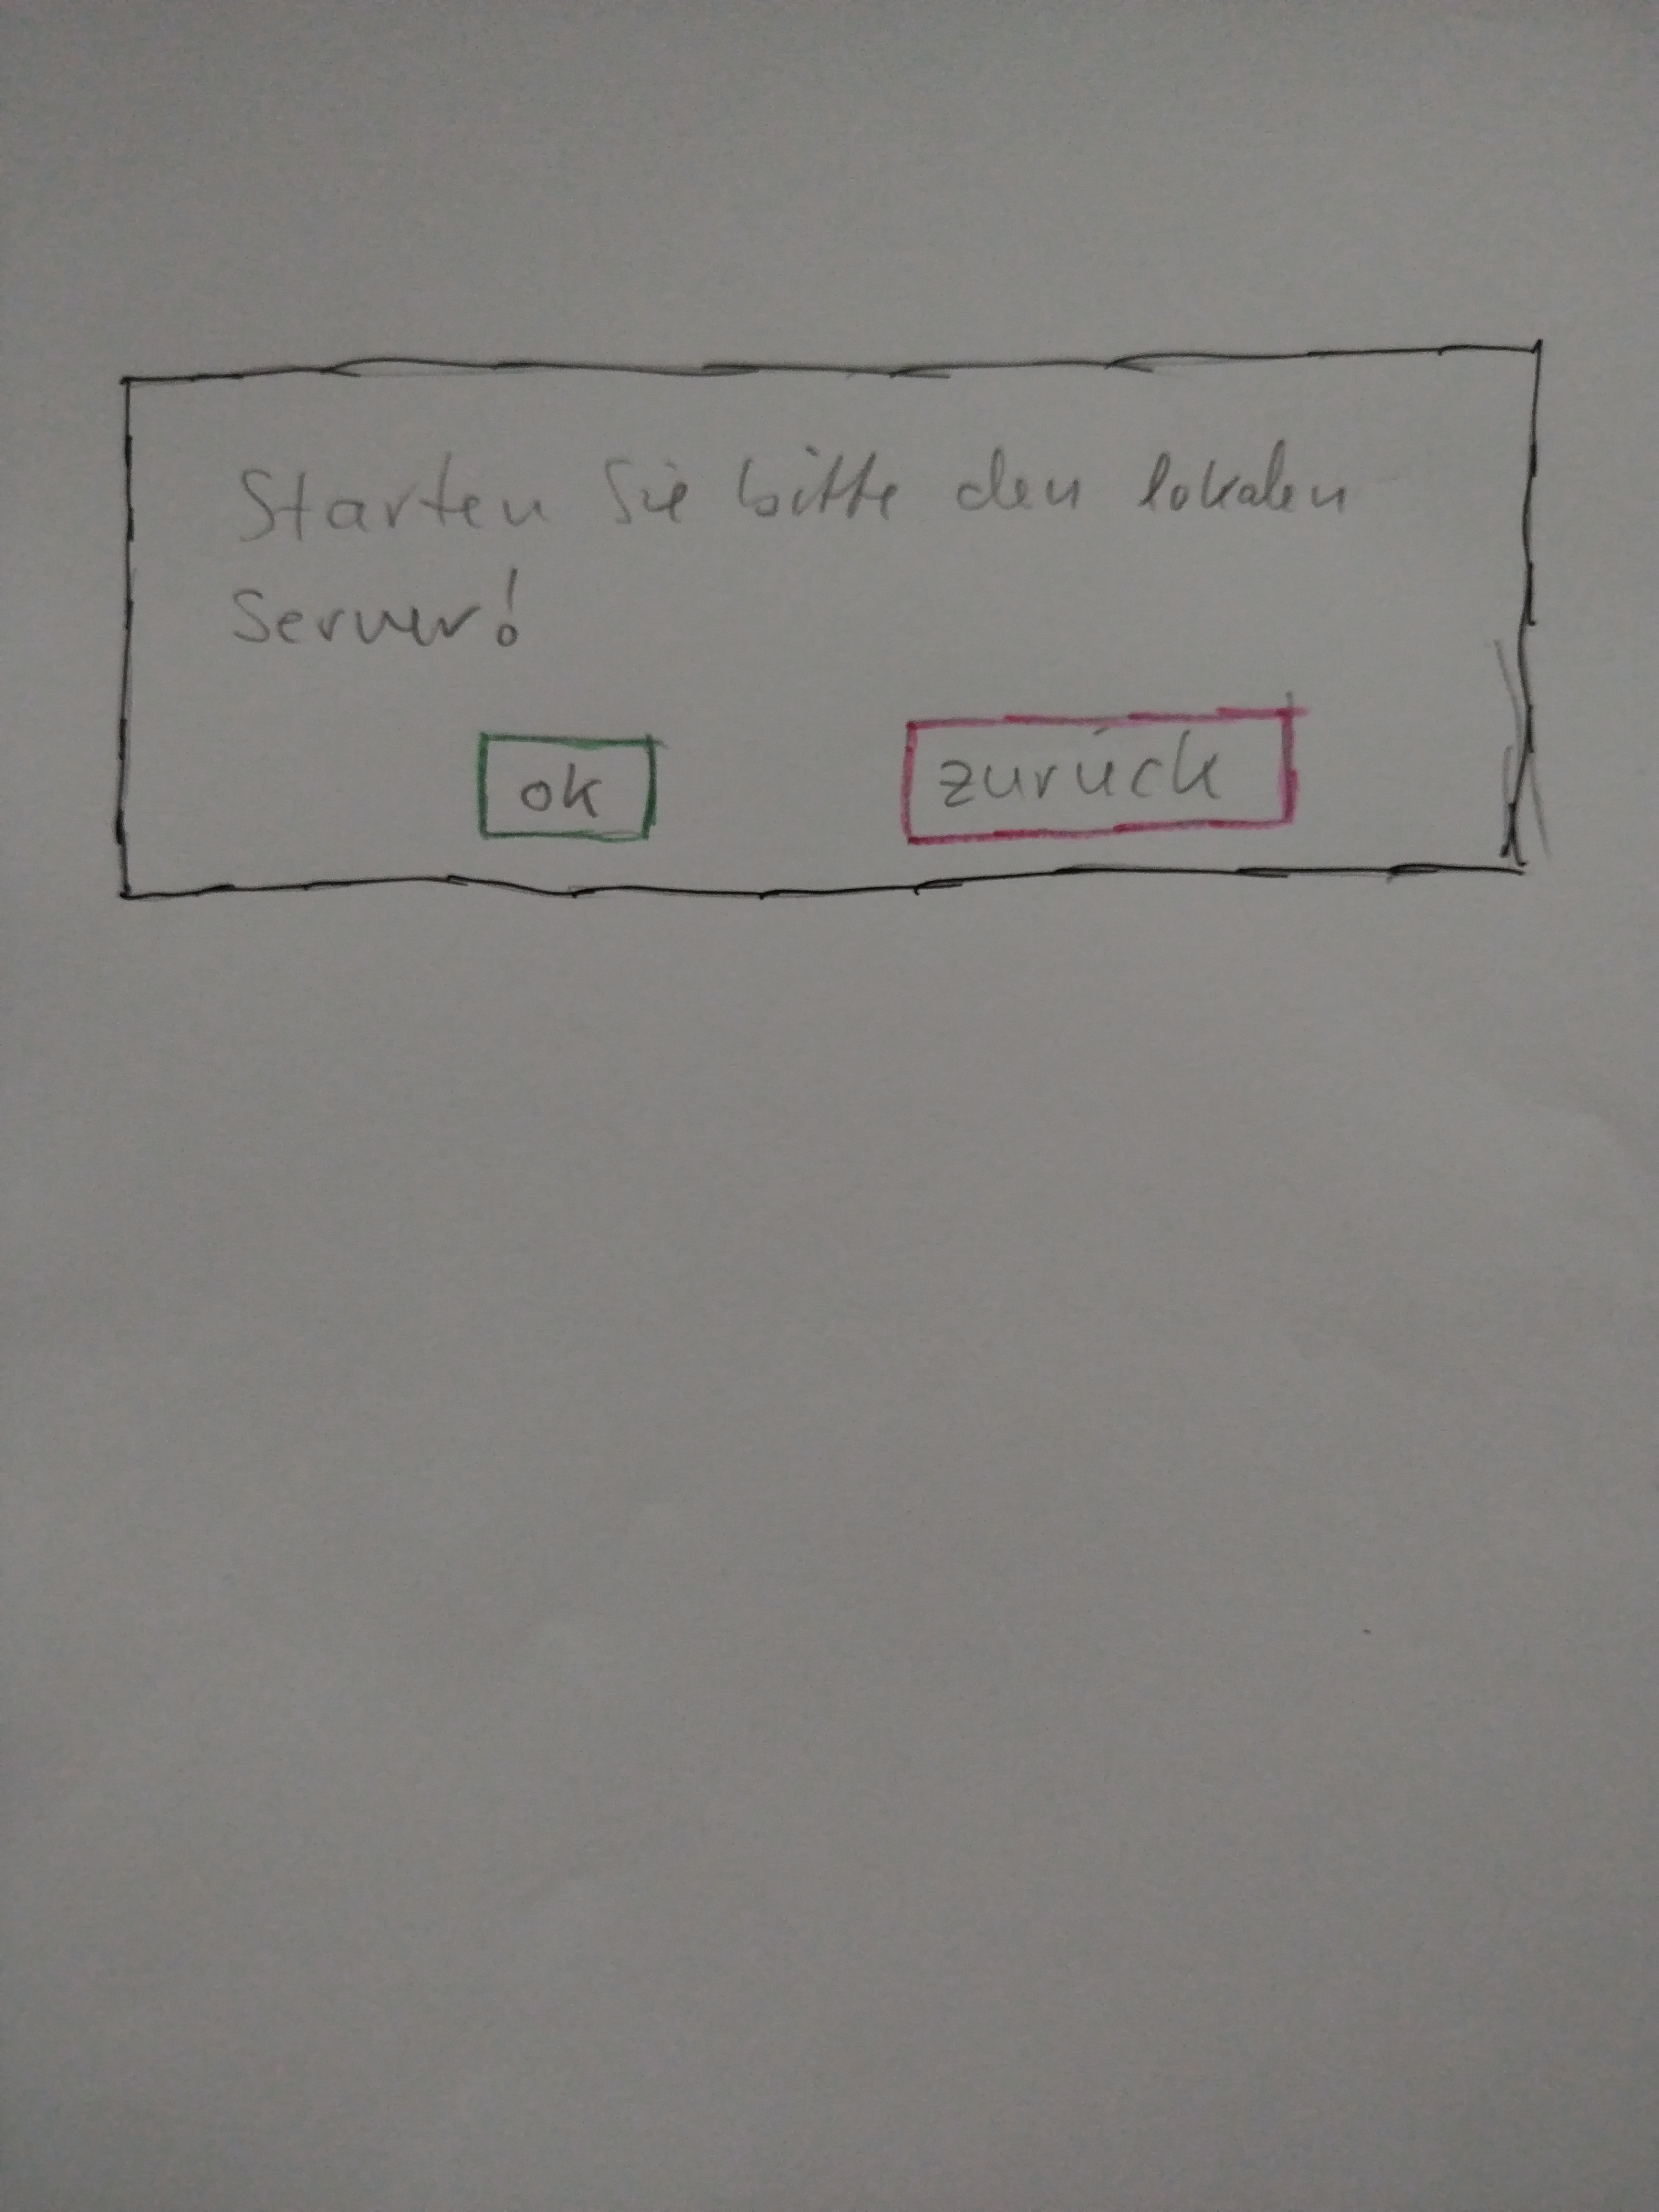 Starten Sie bitte den lokalen
Server!
ok
zurück